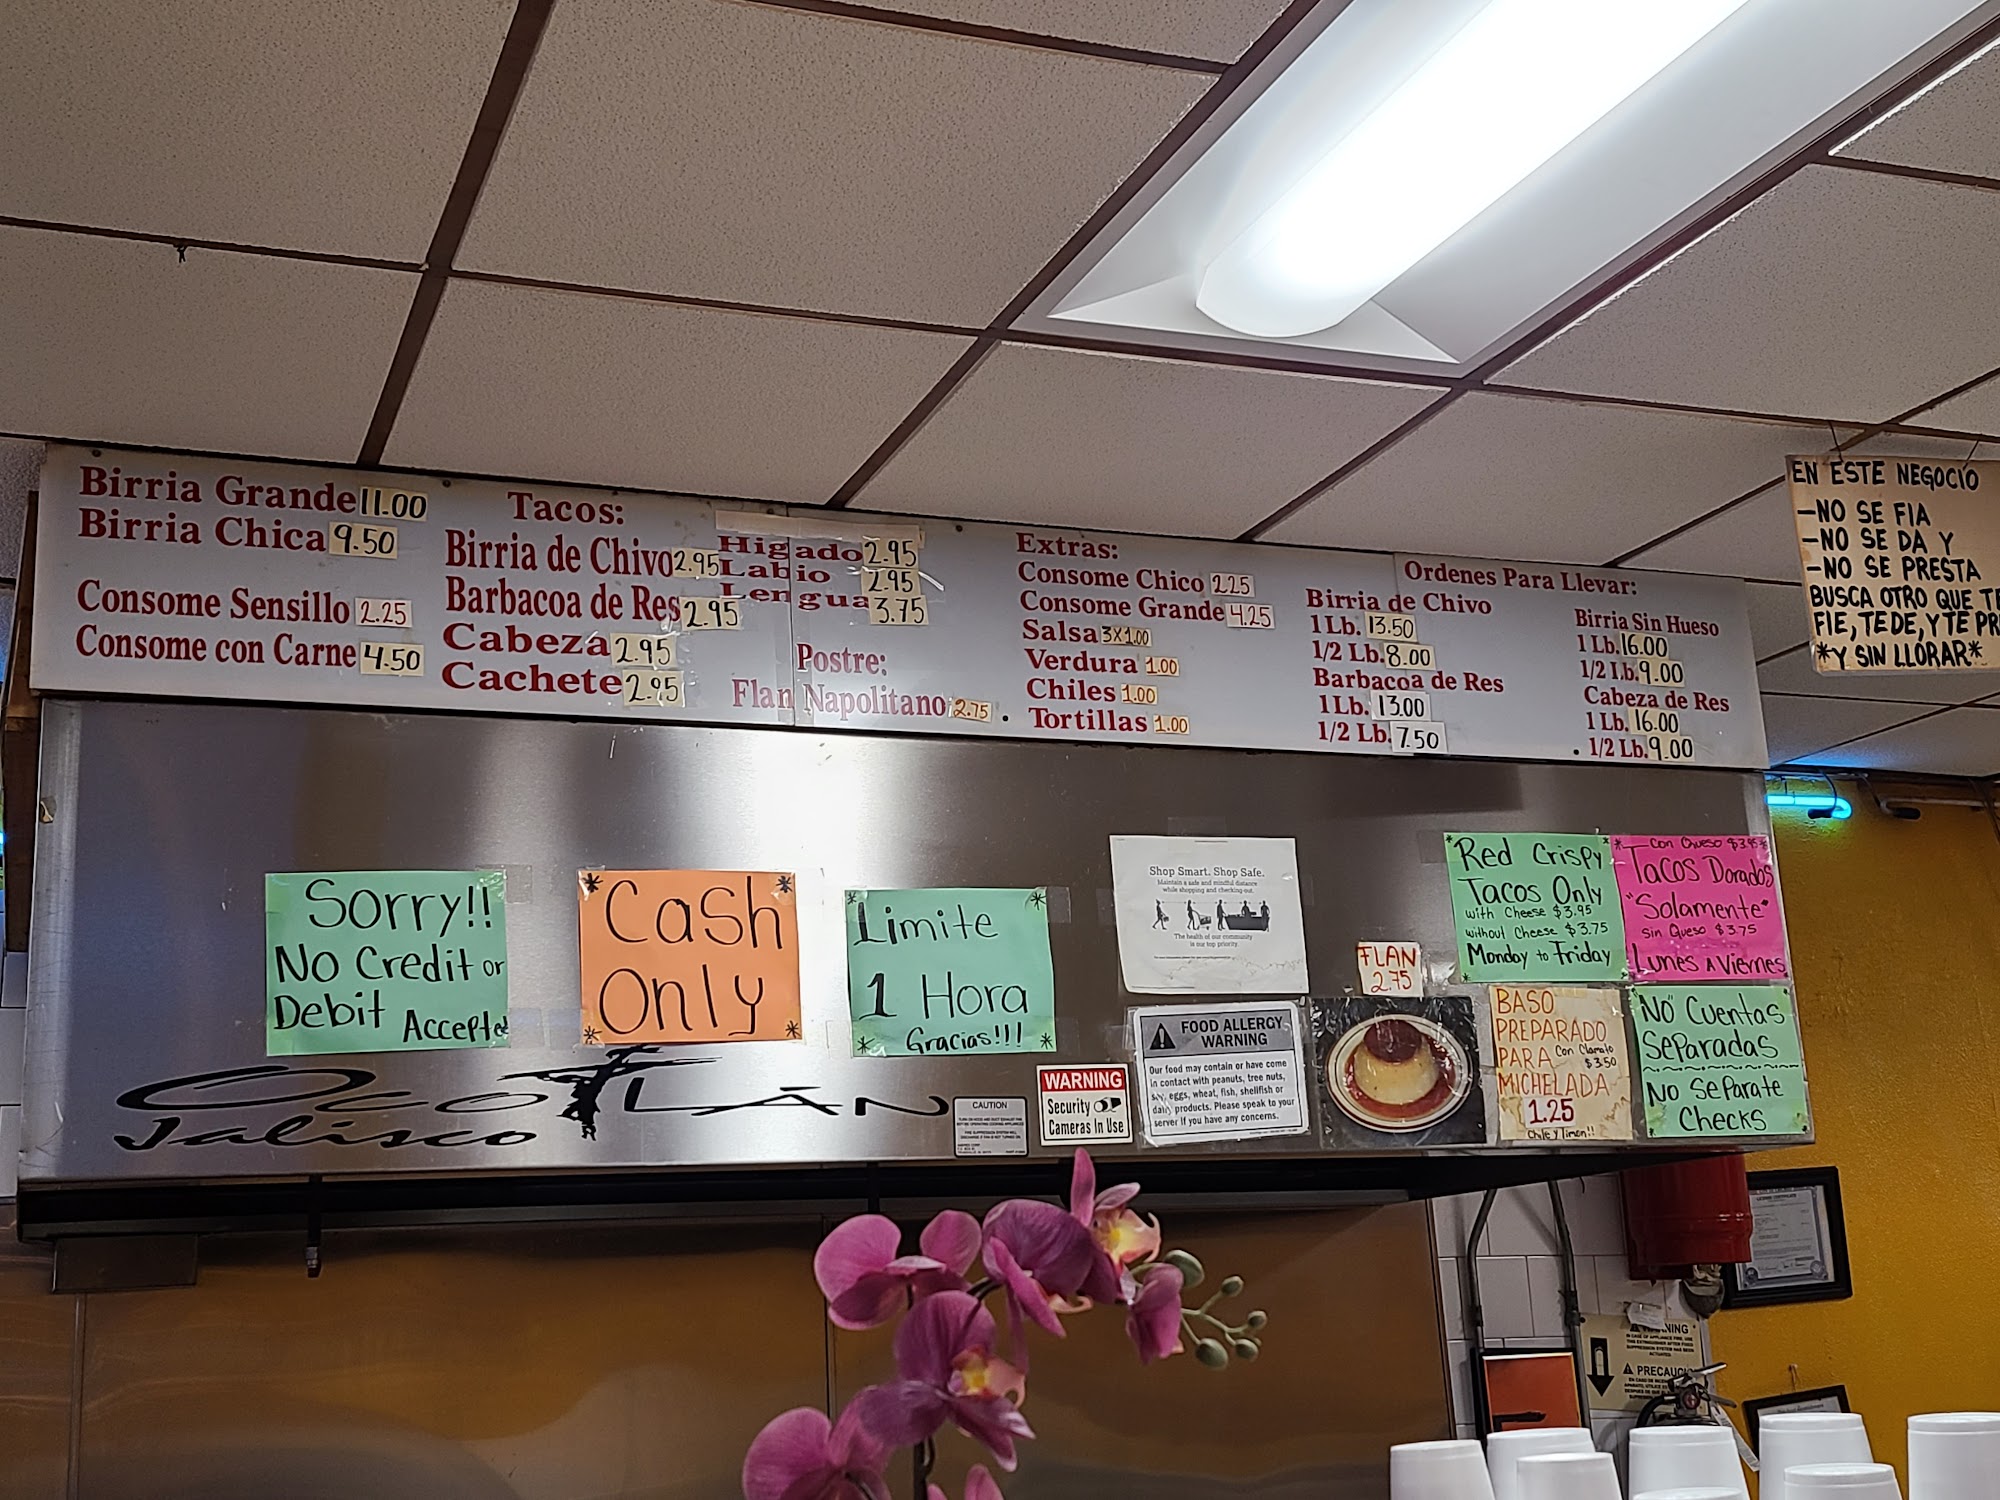 Birria Grande 11.00
Birria Chica 9.50
Consome Sensillo 2.25
Consome con Carne 4.50
Tacos:
Birria de Chivo 2.95
Barbacoa de Res 2.95
Cabeza 2.95
Cachete 2.95
Higado 2.95
Labio 2.95
Lengua 3.75
Postre:
Flan Napolitano 2.75
Extras:
Consome Chico 2.25
Consome Grande 4.25
Salsa 3x1.00
Verdura 1.00
Chiles 1.00
Tortillas 1.00
Ordenes Para Llevar:
Birria de Chivo
1 Lb. 13.50
1/2 Lb. 8.00
Barbacoa de Res
1 Lb. 13.00
1/2 Lb. 7.50
Birria Sin Hueso
1 Lb. 16.00
1/2 Lb. 9.00
Cabeza de Res
1 Lb. 16.00
1/2 Lb. 9.00
EN ESTE NEGOCIO
-NO SE FIA
-NO SE DA Y
-NO SE PRESTA
BUSCA OTRO QUE TE
FIE, TE DE, Y TE PR
*Y SIN LLORAR*
Sorry!!
No Credit or
Debit Accepted
Cash
Only
Limite
1 Hora
Gracias!!!
Shop Smart. Shop Safe.
Maintain a safe and mindful distance
while shopping and checking-out.
The health of our community
is our top priority.
FOOD ALLERGY
WARNING
Our food may contain or have come
in contact with peanuts, tree nuts,
soy, eggs, wheat, fish, shellfish or
dairy products. Please speak to your
server if you have any concerns.
FLAN
2.75
Red Crispy
Tacos Only
with Cheese $3.95
without Cheese $3.75
Monday to Friday
con Queso $3.95
Tacos Dorados
"Solamente"
Sin Queso $3.75
Lunes A Viernes
BASO
PREPARADO
PARA Con Clamato
$3.50
MICHELADA
1.25
Chile y limon!!
"No" Cuentas
Separadas
No Separate
Checks
Ocotlán
Jalisco
CAUTION
WARNING
Security
Cameras In Use
WARNING
PRECAUC